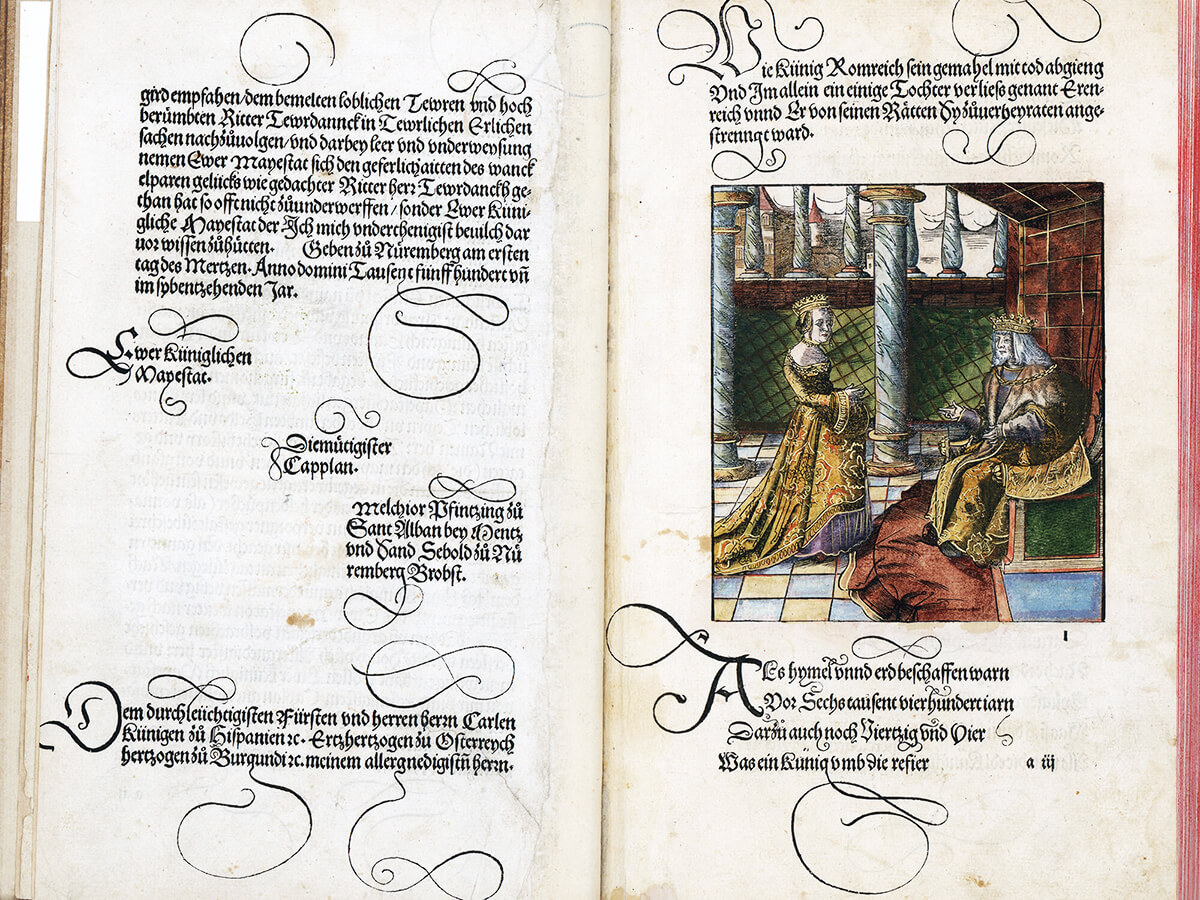 gird empfahen/dem bemelten loblichen Tewren vnd hoch
berümbten Ritter Tewrdannck in Tewrlichen Erlichen
sachen nachzůuolgen/vnd darbey leer vnd vnderweysung
nemen Ewer Mayestat sich den geferlichaitten des wanck
elparen gelücks wie gedachter Ritter herr Tewrdanckh ge-
than hat so offt nicht zůunderwerffen/sonder Ewer Küni-
gliche Mayestat der Ich mich vnderthenigist beuilch dar
uor wissen zůhütten. Geben zů Nüremberg am ersten
tag des Mertzen. Anno domini Tausent fünffhundert vn̄
im sybentzehenden Jar.
Ewer Küniglichen
Mayestat.
Diemütigister
Capplan.
Melchior Pfintzing zů
Sant Alban bey Mentz
vnd Sand Sebold zů Nü
remberg Brobst.
Dem durchleüchtigisten Fürsten vnd herren herrn Carlen
Künigen zů Hispanien ꝛc. Ertzhertzogen zů Osterreych
hertzogen zů Burgundi ꝛc. meinem allergnedigistn̄ herrn.
Wie Künig Romreich sein gemahel mit tod abgieng
Vnd Im allein ein einige Tochter verließ genant Eren-
reich vnnd Er von seinen Rätten Dy zůuerheyraten ange-
strenngt ward.
1
ALs hymel vnnd erd beschaffen warn
Vor Sechs tausent vierhundert iarn
Darzů auch noch Viertzig vnd Vier
Was ein Künig vmb die refier
a iij